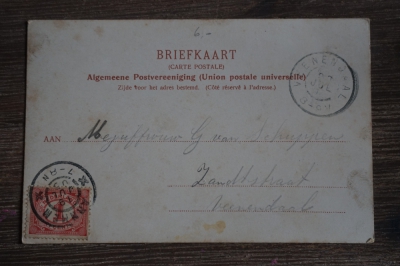 6.-
BRIEFKAART
(CARTE POSTALE)
Algemeene Postvereeniging (Union postale universelle)
Zijde voor het adres bestemd. (Côté réservé à l'adresse.)
VEENENDAAL
AAN Mejuffrouw G van Schuppen
Zandstraat
Veenendaal
7-8N